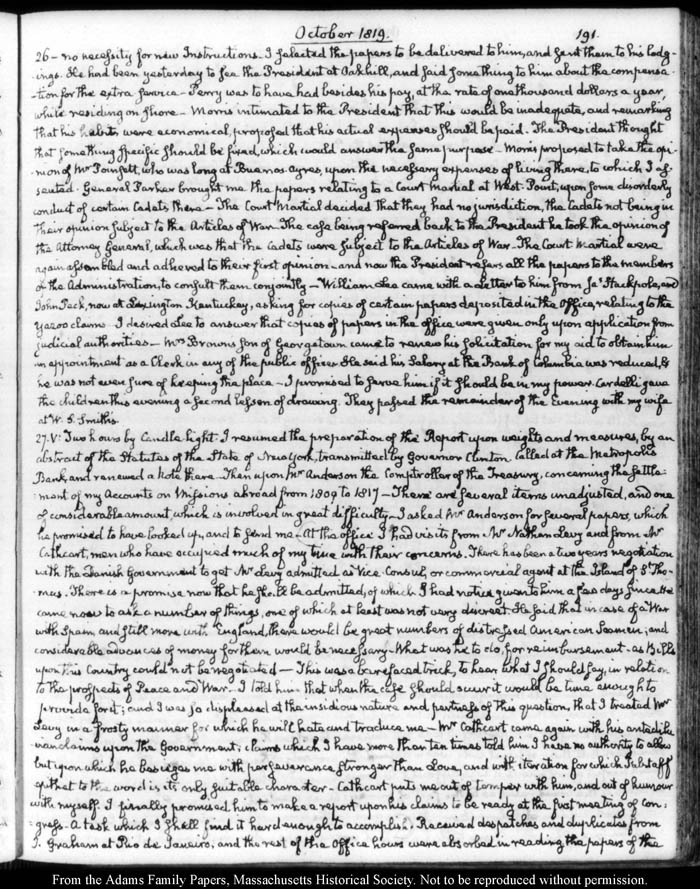 October 1819. 191.
26 - no necessity for new Instructions. I selected the papers to be delivered to him, and sent them to his lodg-
-ings. He had been yesterday to see the President at Oakhill, and said something to him about the compensa-
-tion for the extra service - Perry was to have had besides his pay, at the rate of one thousand dollars a year,
while residing on shore - Morris intimated to the President that this would be inadequate, and remarking
that his habits were economical, proposed that his actual expenses should be paid. The President thought
that something specific should be fixed, which would answer the same purpose - Morris proposed to take the opi-
nion of Mr Poinsett, who was long at Buenos Ayres, upon the necessary expenses of living there, to which I as-
sented. General Parker brought me the papers relating to a Court Martial at West Point, upon some disorderly
conduct of certain Cadets there - The Court Martial decided that they had no jurisdiction, the Cadets not being in
their opinion subject to the Articles of War. The case being referred back to the President he took the opinion of
the Attorney General, which was that the Cadets were subject to the Articles of War - The Court Martial were
again assembled and adhered to their first opinion - and now the President refers all the papers to the members
of the Administration, to consult them conjointly - William Lee came with a Letter to him from Jas Stackpole, and
John Peck, now at Lexington Kentuckey, asking for copies of certain papers deposited in the Office, relating to the
Yazoo claims - I desired Lee to answer that copies of papers in the office were given only upon application from
judicial authorities - Wm Browns son of Georgetown came to renew his solicitation for my aid to obtain him
an appointment as a Clerk in any of the public offices. He said his Salary at the Bank of Columbia was reduced, &
he was not even sure of keeping the place - I promised to serve him if it should be in my power. Cardelli gave
the children this evening a second lesson of drawing. They passed the remainder of the Evening with my wife
at W. S. Smith's.
27. V: Two hours by Candle light. I resumed the preparation of the Report upon weights and measures, by an
abstract of the Statutes of the State of New York, transmitted by Governor Clinton. Called at the Metropolis
Bank, and renewed a Note there - Then upon Mr Anderson the Comptroller of the Treasury, concerning the settle-
ment of my Accounts on Missions abroad from 1809 to 1817 - There are several items unadjusted, and one
of considerable amount, which is involved in great difficulty - I asked Mr Anderson for several papers, which
he promised to have looked up, and to send me - At the office I had visits from Mr Nathan Levy and from Mr
Cathcart, men who have occupied much of my time with their concerns. There has been a two years negotiation
with the Danish Government to get Mr Levy admitted as Vice Consul, or commercial agent at the Island of St Tho-
mas. There is a promise now that he shall be admitted, of which I had notice given to him a few days since. He
came now to ask a number of things, one of which at least was not very discreet. He said that in case of a War
with Spain, and still more with England, there would be great numbers of distressed American Seamen, and
considerable advances of money for them would be necessary - What was he to do, for reimbursement - as Bills
upon this Country could not be negotiated - This was a barefaced trick, to hear what I should say, in relation
to the prospects of Peace and War - I told him that when the case should occur it would be time enough to
provide for it; and I was so displeased at the insidious nature and pertness of this question, that I treated Mr
Levy in a frosty manner for which he will hate and traduce me - Mr Cathcart came again with his antedilu-
vian claims upon the Government; claims which I have more than ten times told him I have no authority to allow
but upon which he besieges me with perseverance stronger than Love, and with iteration for which Falstaff's
epithet to the word is its only suitable character - Cathcart puts me out of temper with him, and out of humour
with myself. I finally promised him to make a report upon his claims to be ready at the first meeting of Con-
gress - A task which I shall find it hard enough to accomplish. Received despatches and duplicates from
J. Graham at Rio de Janeiro; and the rest of the Office hours were absorbed in reading the papers of the
From the Adams Family Papers, Massachusetts Historical Society. Not to be reproduced without permission.